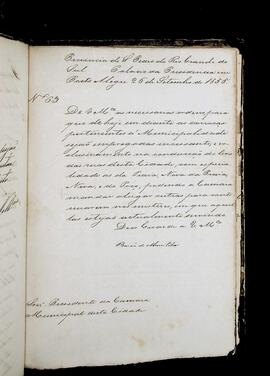 Provincia de S. Pedro do Rio Grande do
Sul Palacio da Presidencia em
Porto Alegre 26 de Setembro de 1855.
Nº 53
De V Mces as necessarias ordens para
que de hoje em diante as carroças
pertencentes á Municipalidade
sejão empregadas incessante, e ex
clusivamente na conducção do lixo
das ruas desta Cidade, com especia
lidade as da Praia, Nova da Praia,
Nova, e do Poço, podendo a Camara
mandar alugar outras para conti
nuarem no mister, em que aquel
las estejão actualmente servindo
Deos Guarde a V. Mces
Barão de Muritiba
Snr. Presidente da Camara
Municipal desta Cidade